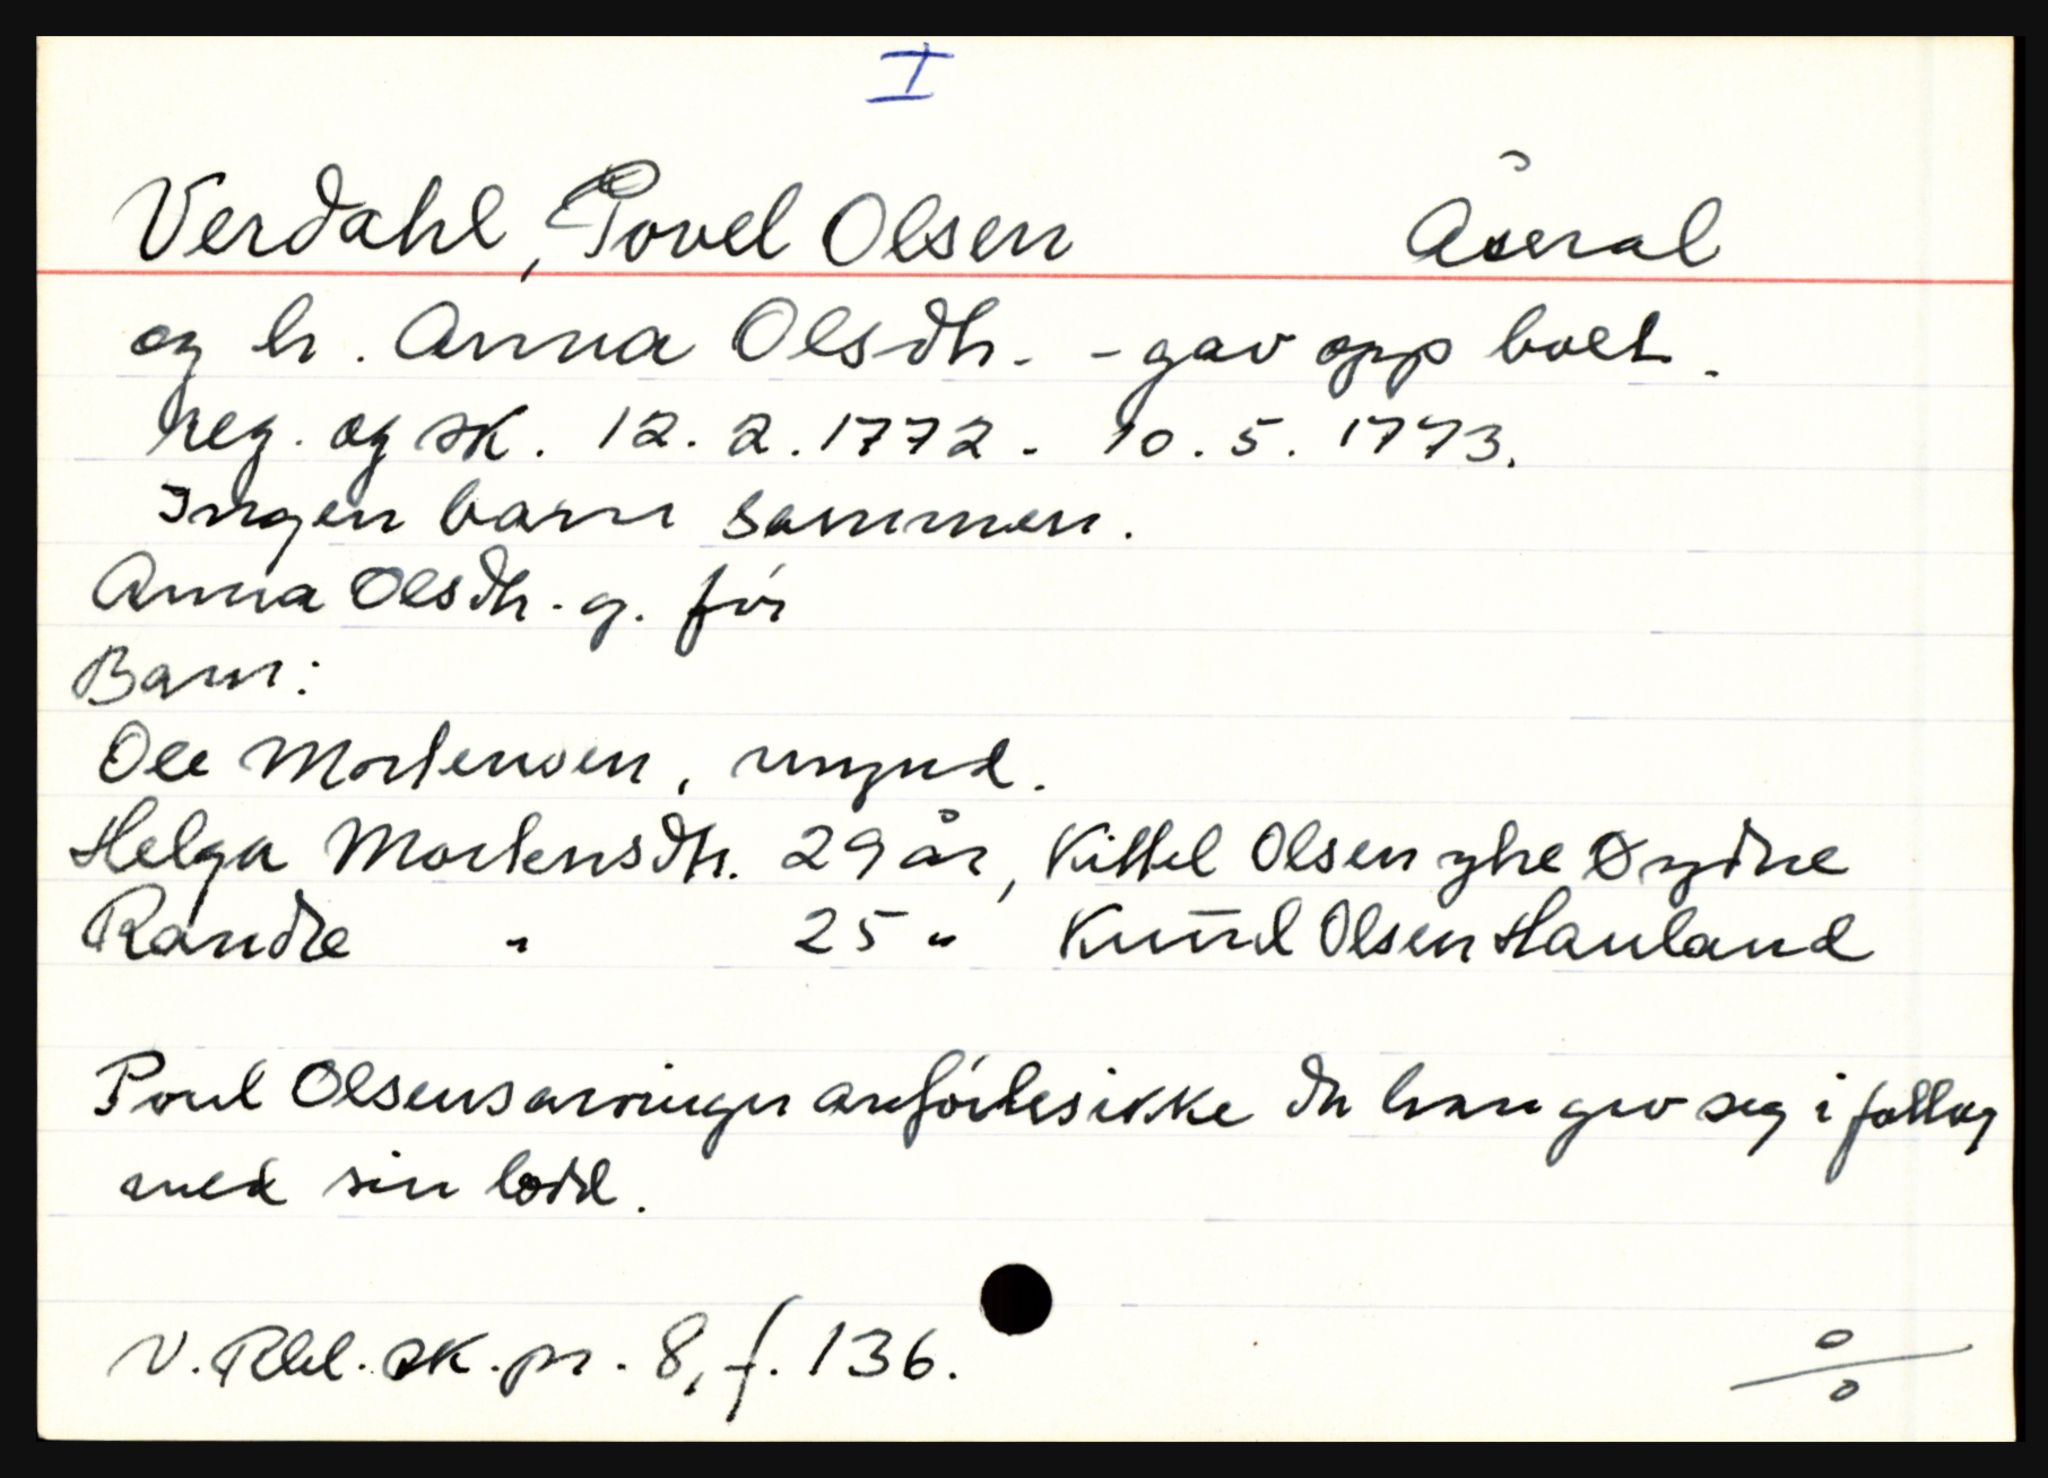 I
Verdahl, Povel Olsen Åseral
og h. Anna Olsdtr. - gav opp boet.
reg. og sk. 12.2.1772 - 10.5.1773.
Ingen barn sammen.
Anna Olsdtr. g. før
Barn:
Ole Mortensen, mynd.
Helga Mortensdtr. 29 år, Kittel Olsen yhe Øydne
Randle " 25 " Knud Olsen Hauland
Povel Olsens arvinger anførtes ikke da han gav seg i follog
med sin lodd.
V. Rbd. sk. pr. 8, f. 136.
o/o